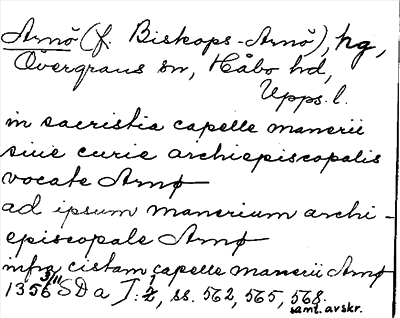 Arnö (f. Biskops-Arnö), hg,
Övergrans sn, Håbo hd,
Upps. l.
in sacristia capelle manerii
siue curie archiepiscopalis
vocate Arnø
ad ipsum manerium archi-
episcopale Arnø
infra cistam capelle manerii Arnø
1356 3/11 SDa I: 2, ss. 562, 565, 568.
samt. avskr.